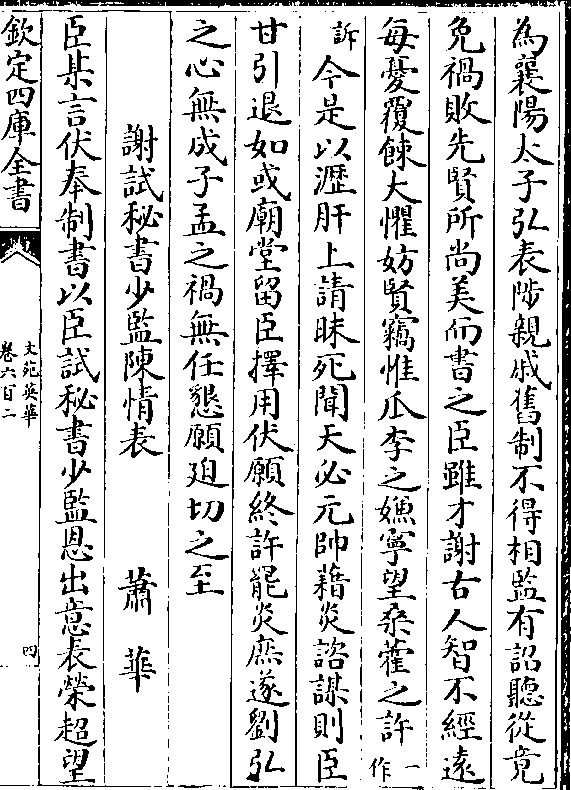 為襄陽太子弘表陟親戚舊制不得相監有詔聽從竟
免禍敗先賢所尚美而書之臣雖才謝古人智不經遠
每憂覆餗大懼妨賢竊惟瓜李之嫌寧望桑藿之許一作
訴今是以瀝肝上請昧死聞天必元帥藉炎諮謀則臣
甘引退如或廟堂留臣擇用伏願終許罷炎庶遂劉弘
之心無成子孟之禍無任懇願廹切之至
謝試秘書少監陳情表 蕭華
臣某言伏奉制書以臣試秘書少監恩出意表榮超望
欽定四庫全書
文苑英華
卷六百二
四